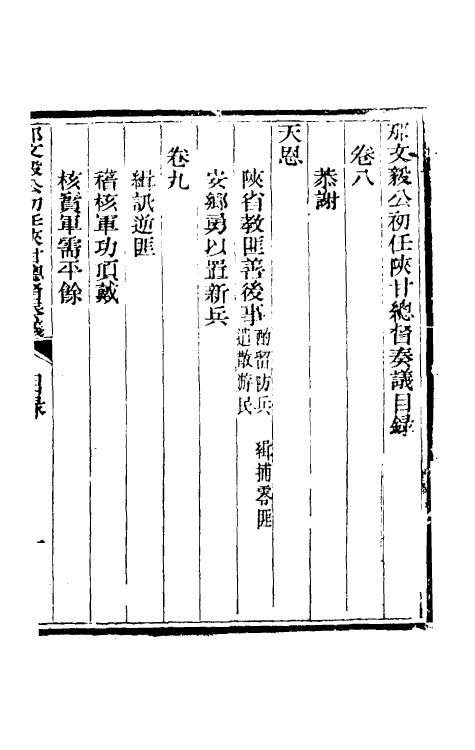 那文毅公初任陝甘總督奏議目錄
卷八
恭謝
天恩
陝省教匪善後事酌留防兵 緝捕零匪
遣散游民
安鄉勇以置新兵
卷九
緝訊逆匪
稽核軍功頂戴
核實軍需平餘
那文毅公初任陝甘總督奏議 目錄 一